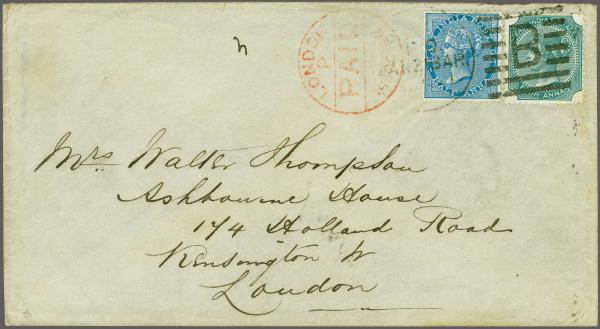 LONDON
PAID
EAST INDIA POSTAGE
HALF ANNA
FOUR ANNAS
B
Mrs Walter Thompson
Ashbourne House
174 Holland Road
Kensington W
London